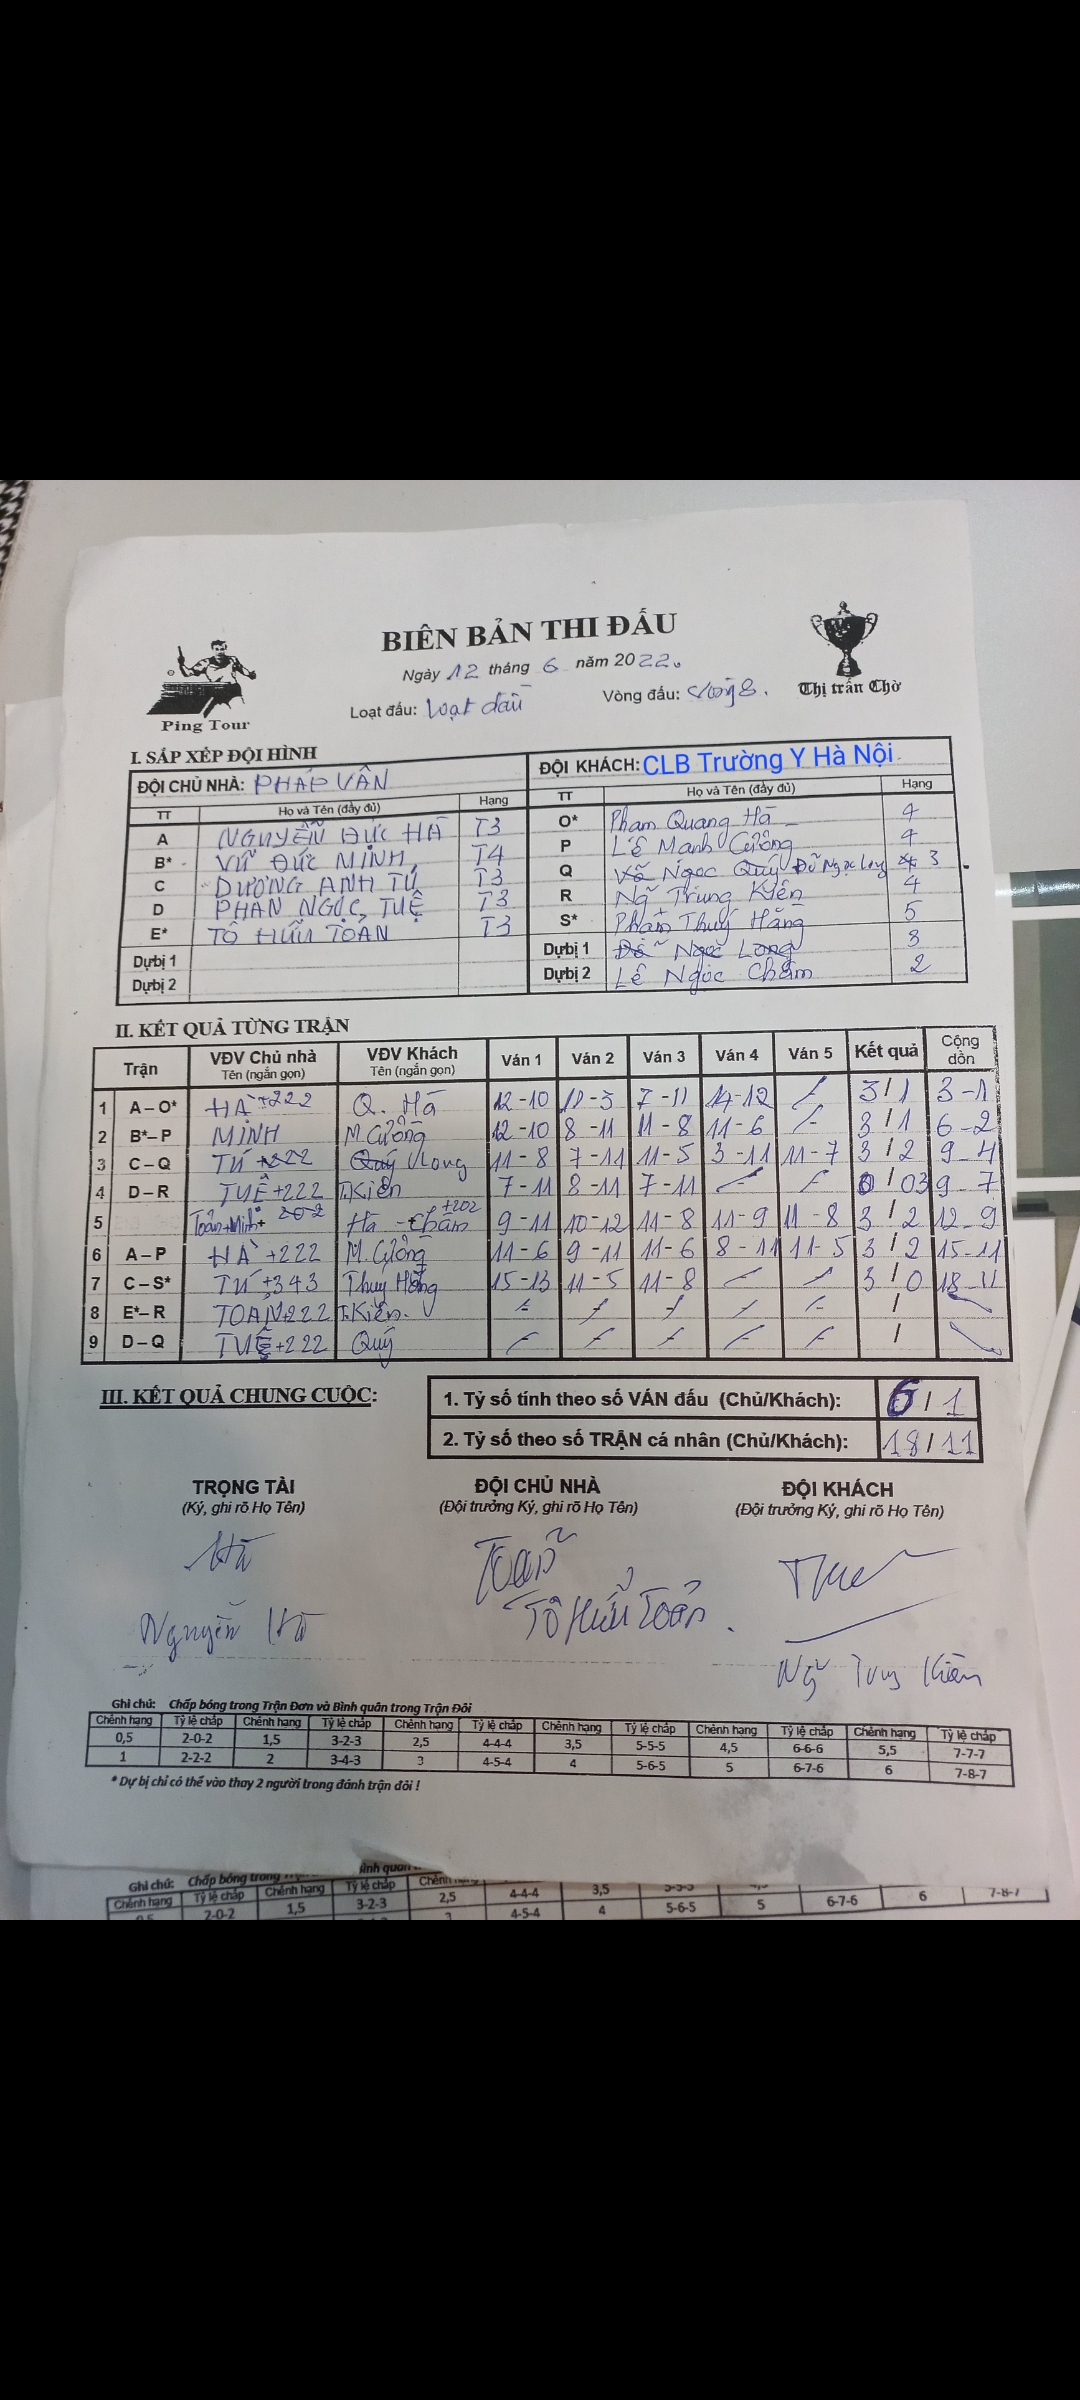 BIÊN BẢN THI ĐẤU
Ngày 12 tháng 6 năm 2022.
Ping Tour
Loạt đấu: Loạt đấu
Vòng đấu: vòng 8.
Thị trấn Chờ
I. SẮP XẾP ĐỘI HÌNH
ĐỘI CHỦ NHÀ: PHÁP VÂN ĐỘI KHÁCH: CLB Trường Y Hà Nội
TT Họ và Tên (đầy đủ) Hạng TT Họ và Tên (đầy đủ) Hạng
A NGUYỄN ĐỨC HÀ T3 O* Phạm Quang Hà 4
B* VŨ ĐỨC MINH T4 P Lê Mạnh Cường 4
C DƯƠNG ANH TÚ T3 Q Võ Ngọc Quý Đỗ Ngọc Long 3
D PHAN NGỌC TUỆ T3 R Ng Trung Kiên 4
E* TÔ HỮU TOẢN T3 S* Phạm Thuý Hằng 5
Dự bị 1 Dự bị 1 Đỗ Ngọc Long 3
Dự bị 2 Dự bị 2 Lê Ngọc Châm 2
II. KẾT QUẢ TỪNG TRẬN
Trận VĐV Chủ nhà Tên (ngắn gọn) VĐV Khách Tên (ngắn gọn) Ván 1 Ván 2 Ván 3 Ván 4 Ván 5 Kết quả Cộng dồn
1 A – O* HÀ +222 Q. Hà 12-10 11-3 7-11 14-12 3/1 3-1
2 B* – P MINH M. Cường 12-10 8-11 11-8 11-6 3/1 6-2
3 C – Q TÚ +222 Quý Long 11-8 7-11 11-5 3-11 11-7 3/2 9-4
4 D – R TUỆ +222 T.Kiên 7-11 8-11 7-11 0/03 9-7
5 Toản+Minh+ 202 Hà - Châm +202 9-11 10-12 11-8 11-9 11-8 3/2 12-9
6 A – P HÀ +222 M. Cường 11-6 9-11 11-6 8-11 11-5 3/2 15-11
7 C – S* TÚ +343 Thuý Hằng 15-13 11-5 11-8 3/0 18-11
8 E* – R TOẢN+222 T.Kiên. /
9 D – Q TUỆ+222 Quý /
III. KẾT QUẢ CHUNG CUỘC:
1. Tỷ số tính theo số VÁN đấu (Chủ/Khách): 6/1
2. Tỷ số theo số TRẬN cá nhân (Chủ/Khách): 18/11
TRỌNG TÀI ĐỘI CHỦ NHÀ ĐỘI KHÁCH
(Ký, ghi rõ Họ Tên) (Đội trưởng Ký, ghi rõ Họ Tên) (Đội trưởng Ký, ghi rõ Họ Tên)
Hà Toản
Nguyễn Hà Tô Hữu Toản. Ng Trung Kiên
Ghi chú: Chấp bóng trong Trận Đơn và Bình quân trong Trận Đôi
Chênh hạng Tỷ lệ chấp Chênh hạng Tỷ lệ chấp Chênh hạng Tỷ lệ chấp Chênh hạng Tỷ lệ chấp Chênh hạng Tỷ lệ chấp Chênh hạng Tỷ lệ chấp
0,5 2-0-2 1,5 3-2-3 2,5 4-4-4 3,5 5-5-5 4,5 6-6-6 5,5 7-7-7
1 2-2-2 2 3-4-3 3 4-5-4 4 5-6-5 5 6-7-6 6 7-8-7
* Dự bị chỉ có thể vào thay 2 người trong đánh trận đôi !
Ghi chú: Chấp bóng trong
Chênh hạng Tỷ lệ chấp Chênh hạng Tỷ lệ chấp 2,5 4-4-4 3,5
2-0-2 1,5 3-2-3 3 4-5-4 4 5-6-5 5 6-7-6 6 7-8-7